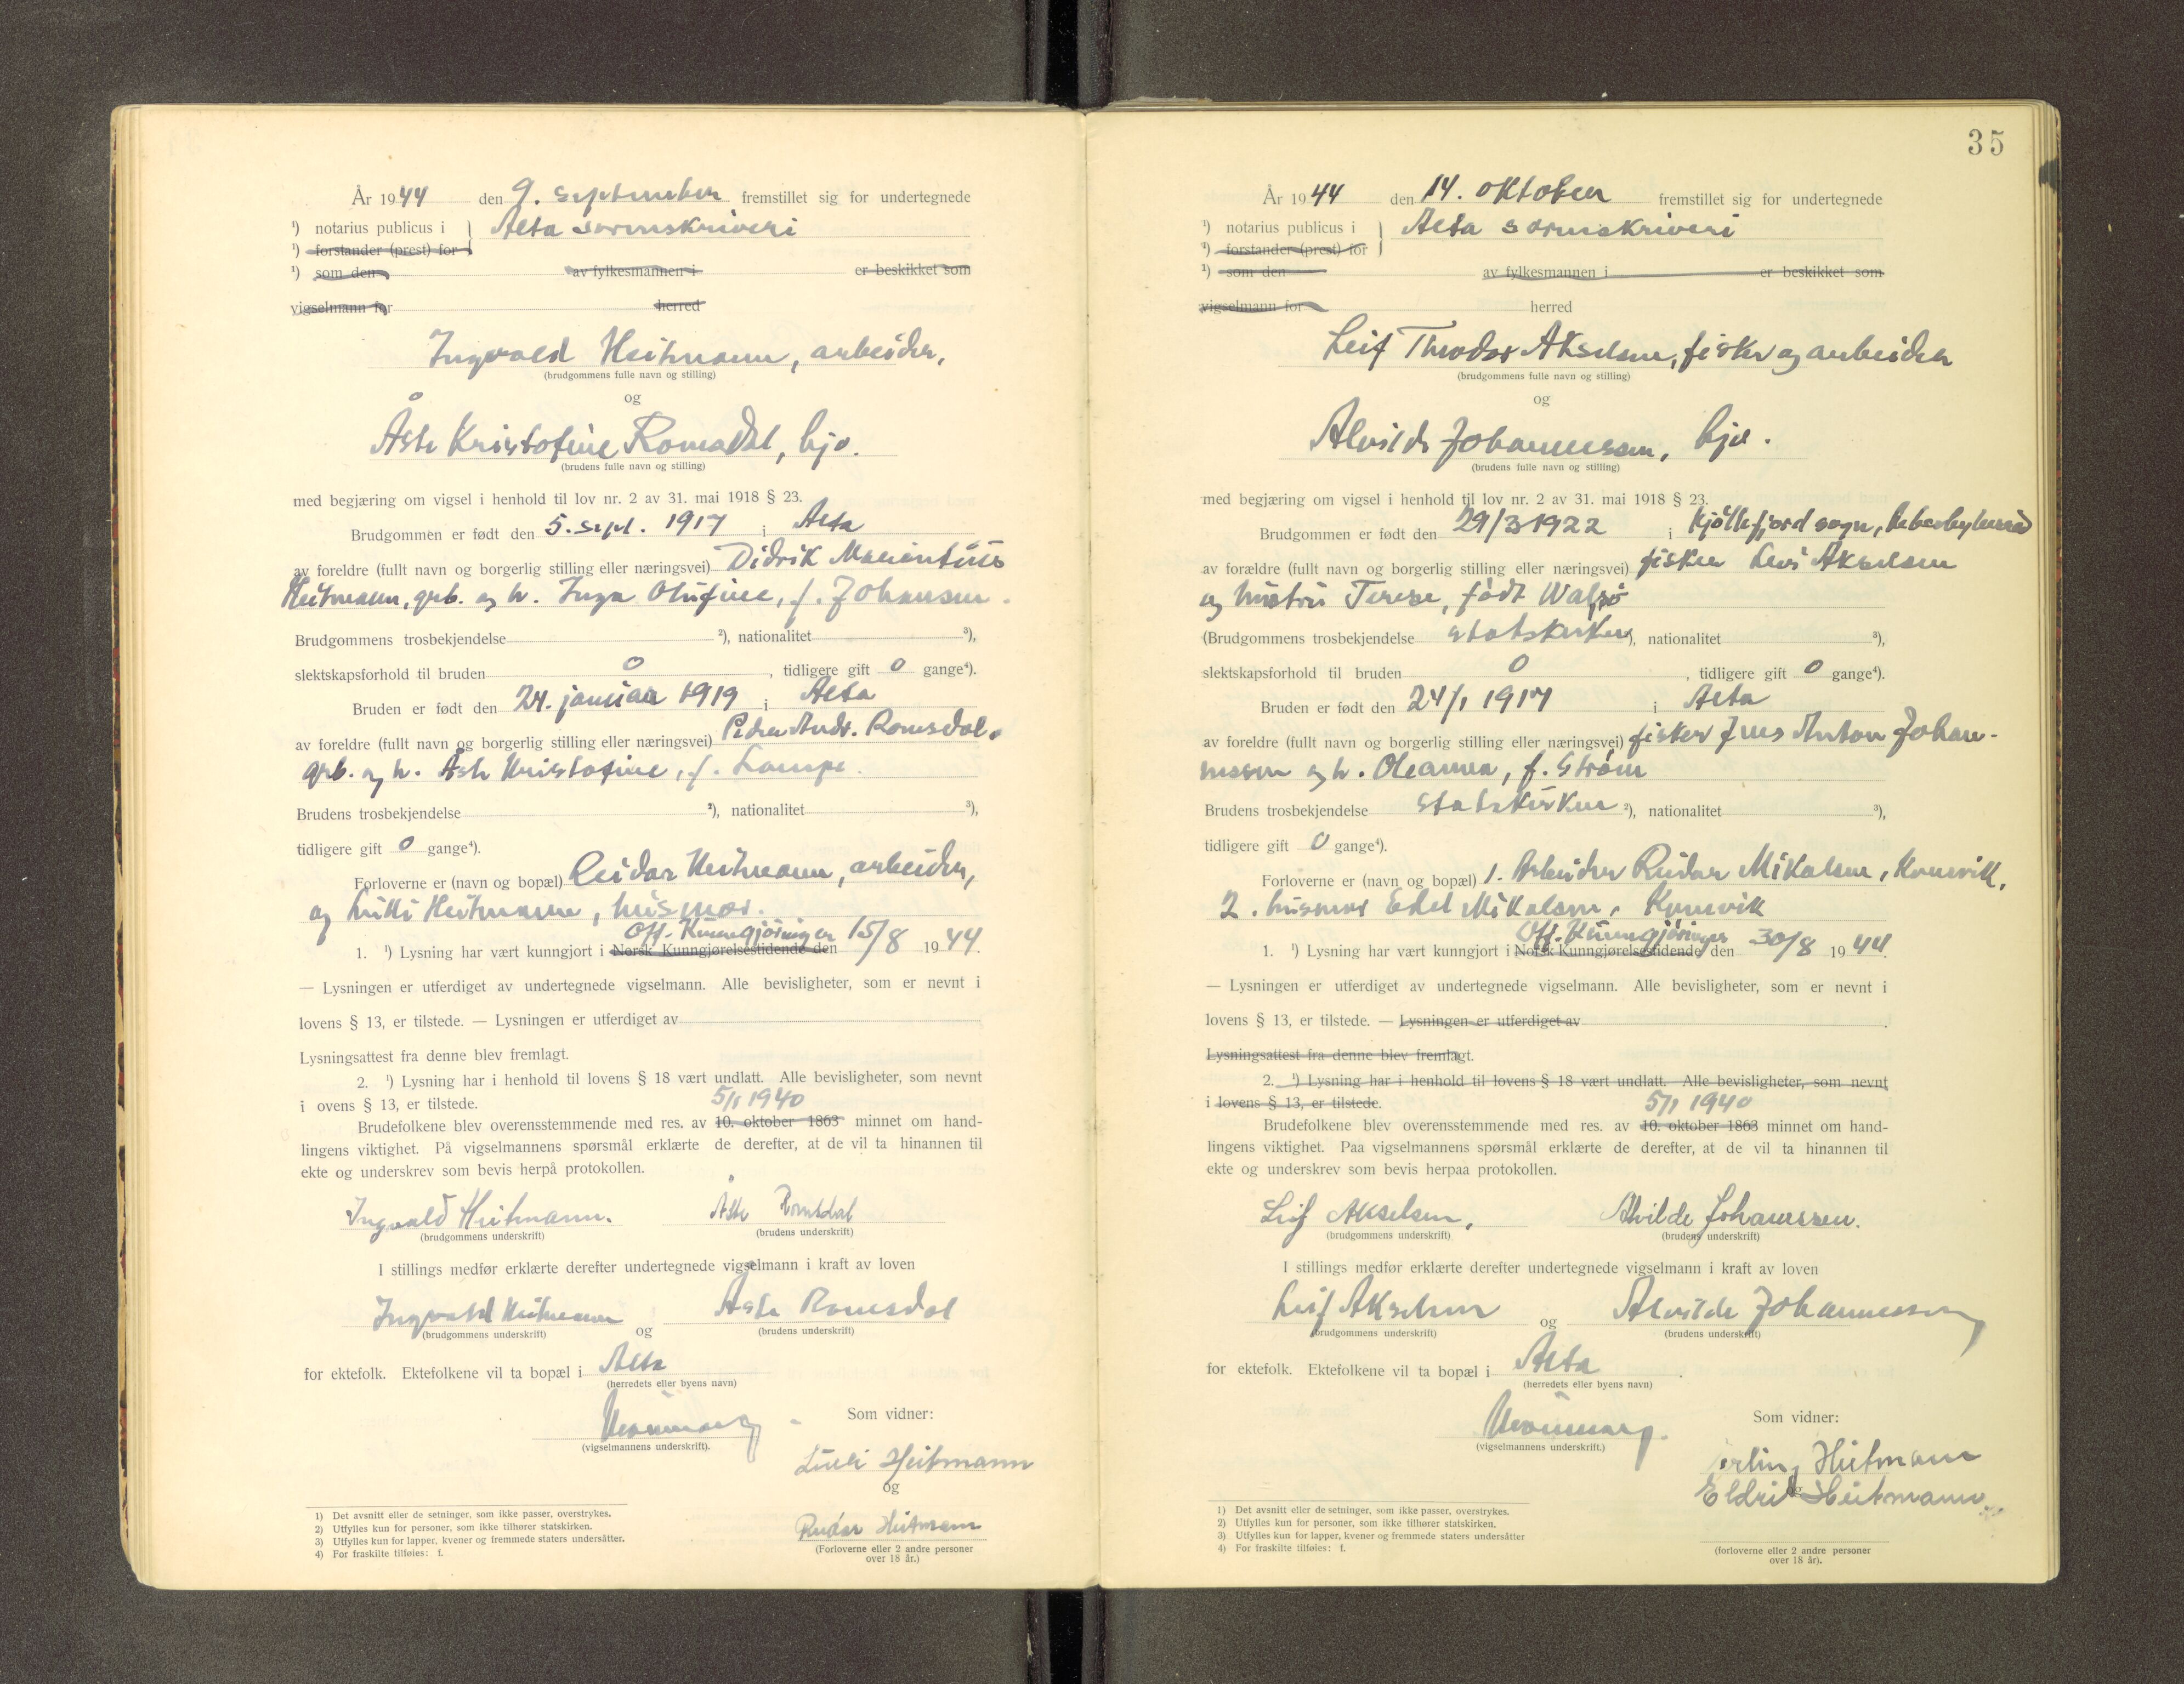 År 1944 den 9. september fremstillet sig for undertegnede
¹) notarius publicus i } Alta sorenskriveri
¹) forstander (prest) for
¹) som den av fylkesmannen i er beskikket som
vigselmann for herred
Ingvald Heitmann, arbeider,
(brudgommens fulle navn og stilling)
og
Åsta Kristofine Romsdal, hjv.
(brudens fulle navn og stilling)
med begjæring om vigsel i henhold til lov nr. 2 av 31. mai 1918 § 23.
Brudgommen er født den 5. sept. 1917 i Alta
av foreldre (fullt navn og borgerlig stilling eller næringsvei) Didrik
Heitmann, grb. og h. Inga Olufine, f. Johansen.
Brudgommens trosbekjendelse ²), nationalitet ³),
slektskapsforhold til bruden 0, tidligere gift 0 gange⁴).
Bruden er født den 24. januar 1919 i Alta
av foreldre (fullt navn og borgerlig stilling eller næringsvei) Peder Andr. Romsdal,
grb. og h. Åsta Kristofine, f. Lampe.
Brudens trosbekjendelse ²), nationalitet ³),
tidligere gift 0 gange⁴).
Forloverne er (navn og bopæl) Reidar Heitmann, arbeider,
og Heitmann, husmor.
Off. Kunngjøringer 15/8
1. ¹) Lysning har vært kunngjort i Norsk Kunngjørelsestidende den 1944.
— Lysningen er utferdiget av undertegnede vigselmann. Alle bevisligheter, som er nevnt i
lovens § 13, er tilstede. — Lysningen er utferdiget av
Lysningsattest fra denne blev fremlagt.
2. ¹) Lysning har i henhold til lovens § 18 vært undlatt. Alle bevisligheter, som nevnt
i ovens § 13, er tilstede. 5/1 1940
Brudefolkene blev overensstemmende med res. av 10. oktober 1863 minnet om hand-
lingens viktighet. På vigselmannens spørsmål erklærte de derefter, at de vil ta hinannen til
ekte og underskrev som bevis herpå protokollen.
Ingvald Heitmann. Åsta Romsdal
(brudgommens underskrift) (brudens underskrift)
I stillings medfør erklærte derefter undertegnede vigselmann i kraft av loven
Ingvald Heitmann og Åsta Romsdal
(brudgommens underskrift) (brudens underskrift)
for ektefolk. Ektefolkene vil ta bopæl i Alta
(herredets eller byens navn)
Som vidner:
(vigselmannens underskrift).
Heitmann
og
Reidar Heitmann
(Forloverne eller 2 andre personer
over 18 år.)
1) Det avsnitt eller de setninger, som ikke passer, overstrykes.
2) Utfylles kun for personer, som ikke tilhører statskirken.
3) Utfylles kun for lapper, kvener og fremmede staters undersåtter.
4) For fraskilte tilføies: f.
35
År 1944 den 14. oktober fremstillet sig for undertegnede
¹) notarius publicus i } Alta sorenskriveri
¹) forstander (prest) for
¹) som den av fylkesmannen i er beskikket som
vigselmann for herred
Leif Theodor Akselsen, fisker og arbeider
(brudgommens fulle navn og stilling)
og
Alvilde Johannessen, hjv.
(brudens fulle navn og stilling)
med begjæring om vigsel i henhold til lov nr. 2 av 31. mai 1918 § 23.
Brudgommen er født den 29/3 1922 i Kjøllefjord sogn, Lebesby herred
av forældre (fullt navn og borgerlig stilling eller næringsvei) fisker Akselsen
og hustru Terese, født Walsø
(Brudgommens trosbekjendelse statskirken ²), nationalitet ³),
slektskapsforhold til bruden 0, tidligere gift 0 gange⁴).
Bruden er født den 24/1 1917 i Alta
av foreldre (fullt navn og borgerlig stilling eller næringsvei) fisker Jens Anton Johan-
nessen og h. Oleanna, f. Strøm
Brudens trosbekjendelse statskirken ²), nationalitet ³),
tidligere gift 0 gange⁴).
Forloverne er (navn og bopæl) 1. Arbeider Reidar Mikalsen, Komsvik,
2. husmor Edel Mikalsen, Komsvik
Off. Kunngjøringer
1. ¹) Lysning har vært kunngjort i Norsk Kunngjørelsestidende den 30/8 1944.
— Lysningen er utferdiget av undertegnede vigselmann. Alle bevisligheter, som er nevnt i
lovens § 13, er tilstede. — Lysningen er utferdiget av
Lysningsattest fra denne blev fremlagt.
2. ¹) Lysning har i henhold til lovens § 18 vært undlatt. Alle bevisligheter, som nevnt
i lovens § 13, er tilstede. 5/1 1940
Brudefolkene blev overensstemmende med res. av 10. oktober 1863 minnet om hand-
lingens viktighet. Paa vigselmannens spørsmål erklærte de derefter, at de vil ta hinannen til
ekte og underskrev som bevis herpaa protokollen.
Leif Akselsen, Alvilde Johanssen.
(brudgommens underskrift) (brudens underskrift)
I stillings medfør erklærte derefter undertegnede vigselmann i kraft av loven
Leif Akselsen og Alvilde Johannessen
(brudgommens underskrift) (brudens underskrift)
for ektefolk. Ektefolkene vil ta bopæl i Alta.
(herredets eller byens navn)
Som vidner:
(vigselmannens underskrift.)
Erling Heitmann
Eldrid Heitmann
(forloverne eller 2 andre personer
over 18 år).
1) Det avsnitt eller de setninger, som ikke passer, overstrykes.
2) Utfylles kun for personer, som ikke tilhører statskirken.
3) Utfylles kun for lapper, kvener og fremmede staters undersåtter
4) For fraskilte tilføies: f.